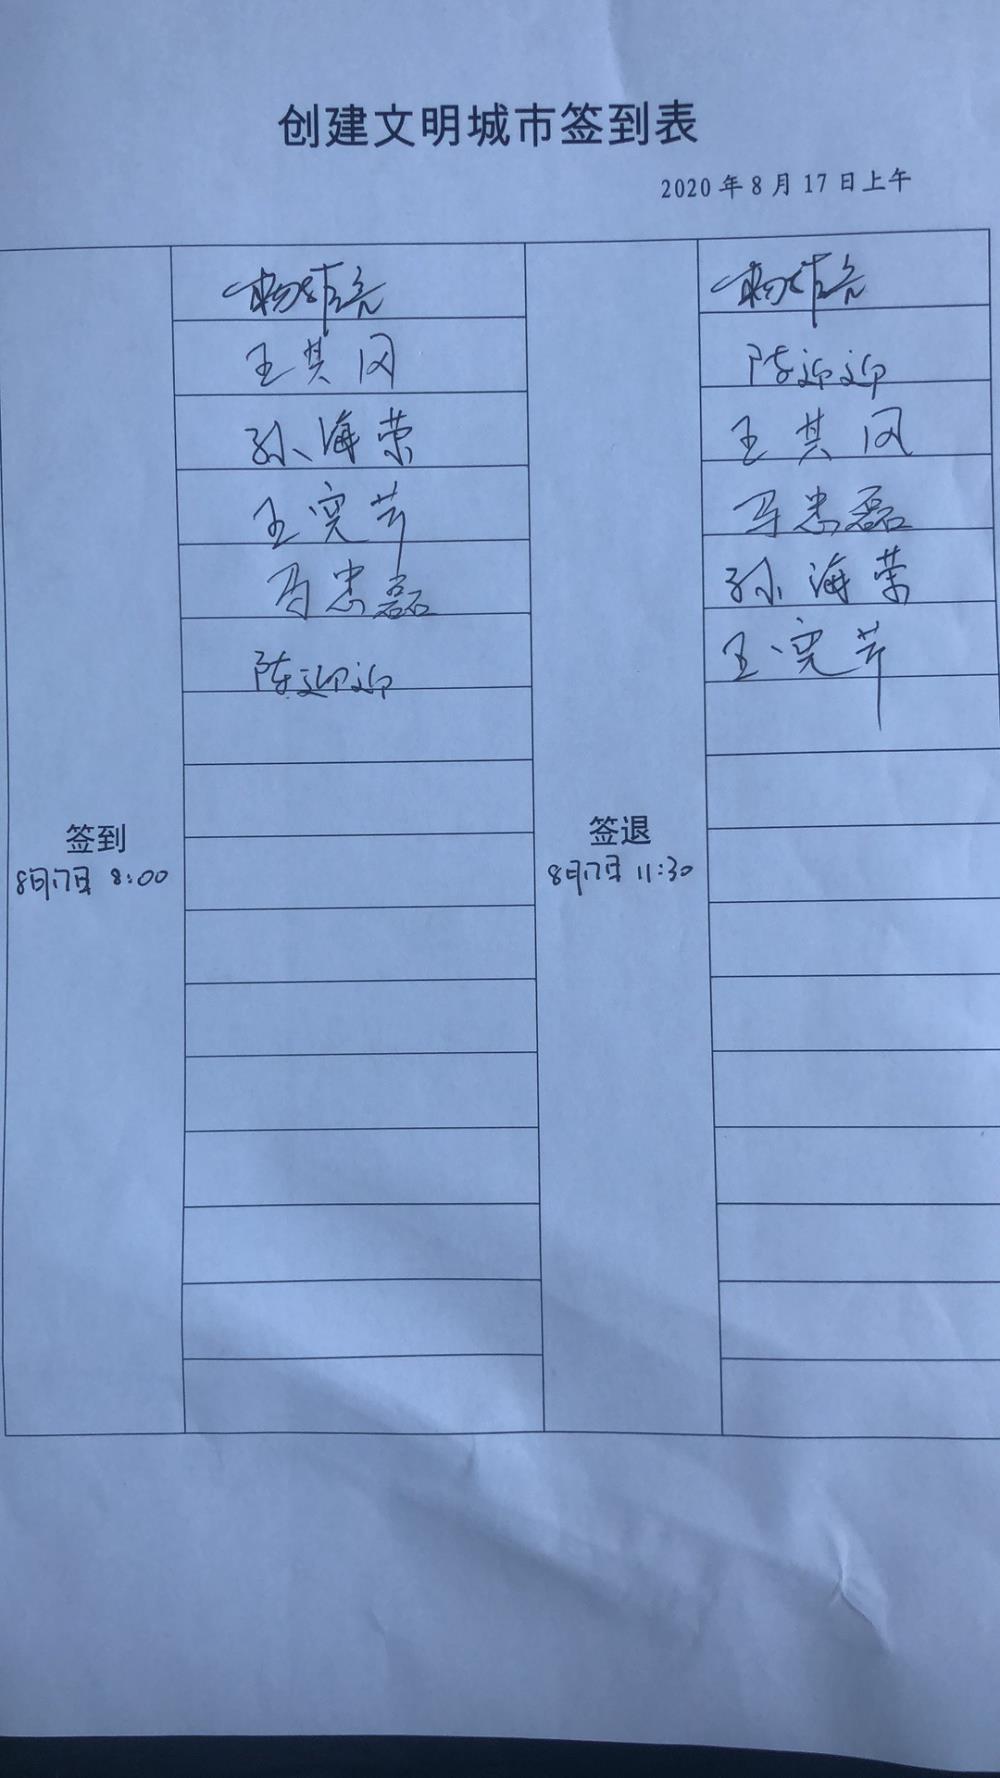 创建文明城市签到表
2020年8月17日上午
王其冈
孙海荣
王奕芹
马忠磊
陈迎迎
签到
8月17日 8:00
陈迎迎
王其冈
马忠磊
孙海荣
王奕芹
签退
8月17日 11:30